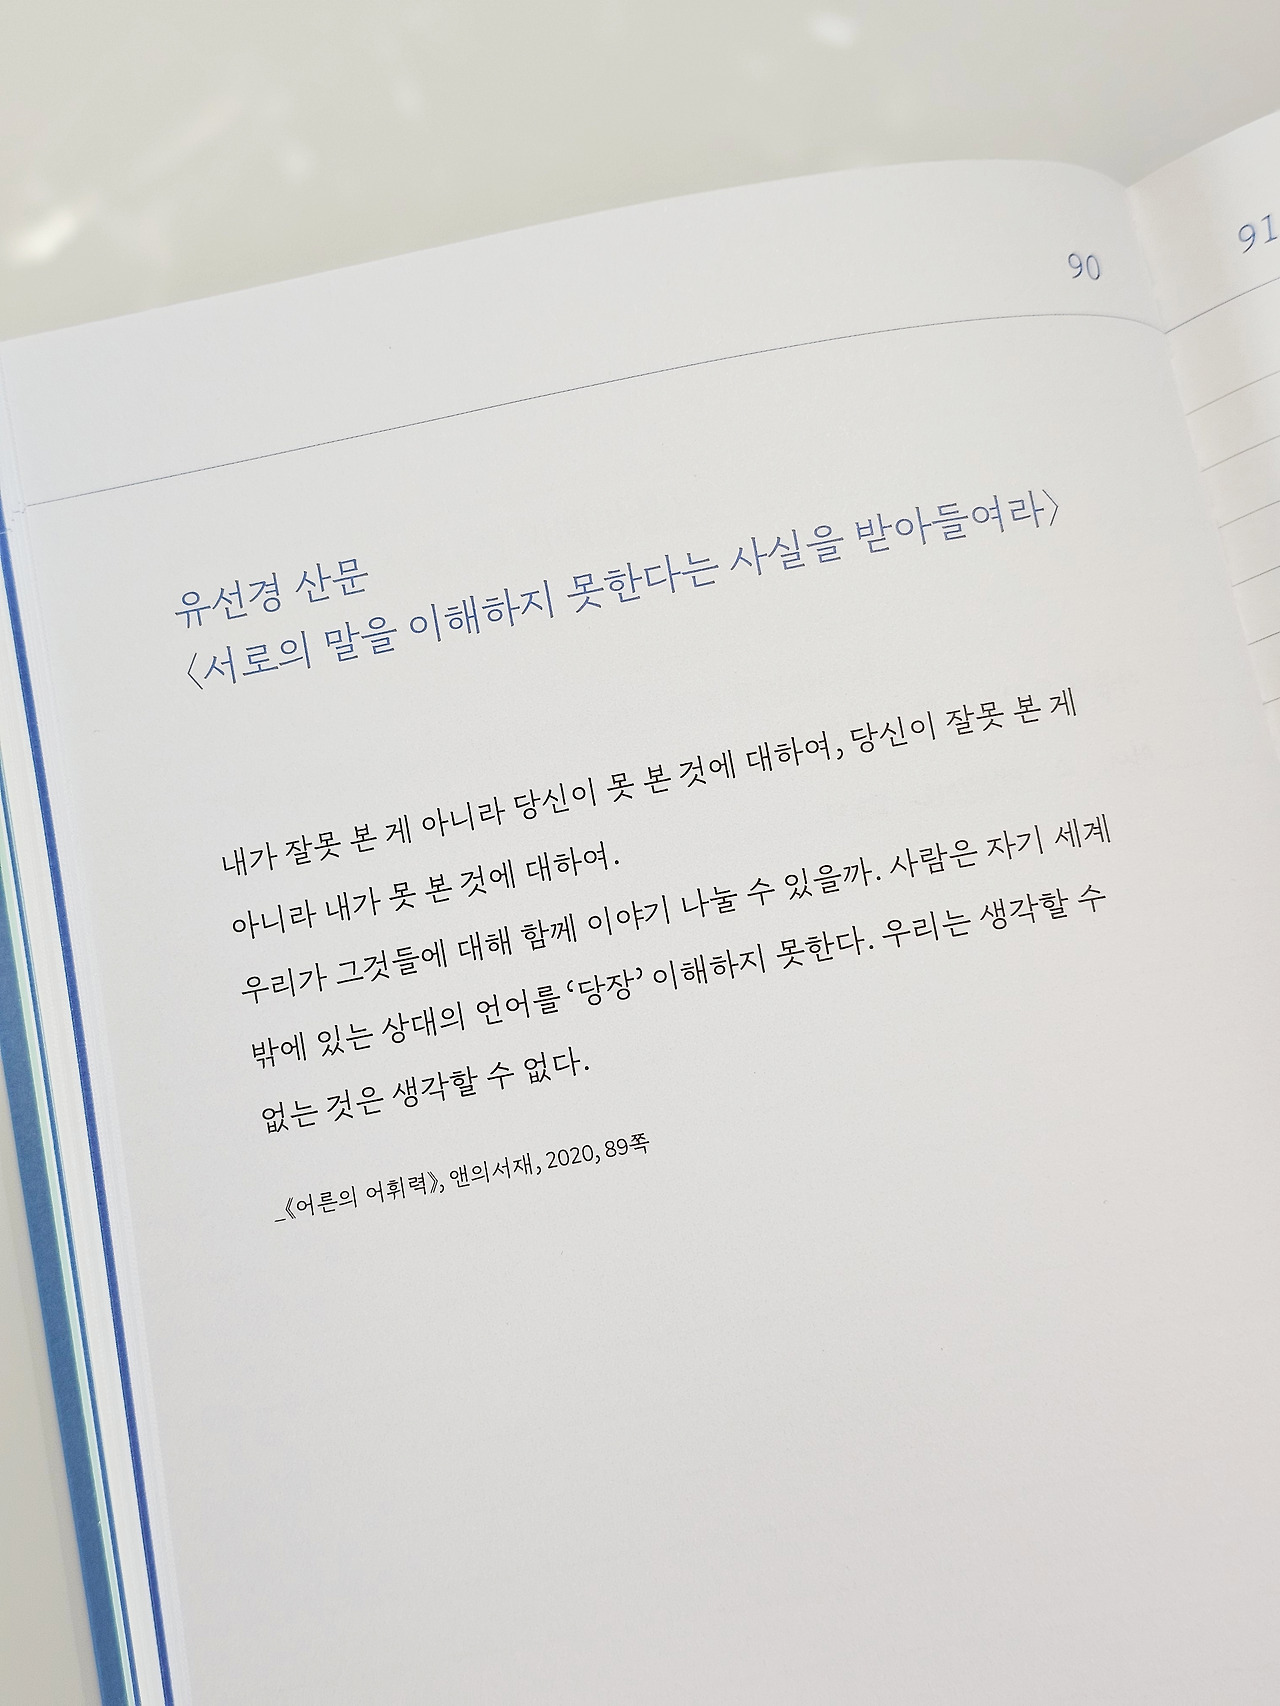 90
91
유선경 산문
〈서로의 말을 이해하지 못한다는 사실을 받아들여라〉
내가 잘못 본 게 아니라 당신이 못 본 것에 대하여, 당신이 잘못 본 게
아니라 내가 못 본 것에 대하여.
우리가 그것들에 대해 함께 이야기 나눌 수 있을까. 사람은 자기 세계
밖에 있는 상대의 언어를 ‘당장’ 이해하지 못한다. 우리는 생각할 수
없는 것은 생각할 수 없다.
_《어른의 어휘력》, 앤의서재, 2020, 89쪽